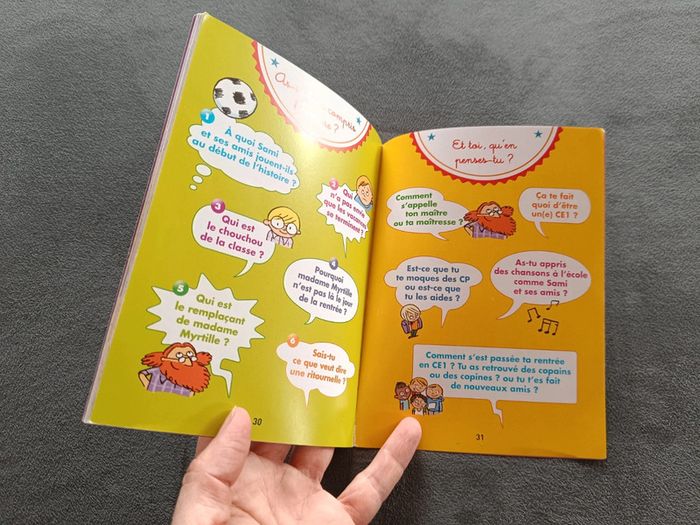 As-
compris
?
1
À quoi Sami
et ses amis jouent-ils
au début de l'histoire ?
2
Qui
n'a pas envie
que les vacances
se terminent ?
3
Qui est
le chouchou
de la classe ?
4
Pourquoi
madame Myrtille
n'est pas là le jour
de la rentrée ?
5
Qui est
le remplaçant
de madame
Myrtille ?
6
Sais-tu
ce que veut dire
une ritournelle ?
30
Et toi, qu'en
penses-tu ?
Comment
s'appelle
ton maître
ou ta maîtresse ?
Ça te fait
quoi d'être
un(e) CE1 ?
Est-ce que tu
te moques des CP
ou est-ce que
tu les aides ?
As-tu appris
des chansons à l'école
comme Sami
et ses amis ?
Comment s'est passée ta rentrée
en CE1 ? Tu as retrouvé des copains
ou des copines ? ou tu t'es fait
de nouveaux amis ?
31